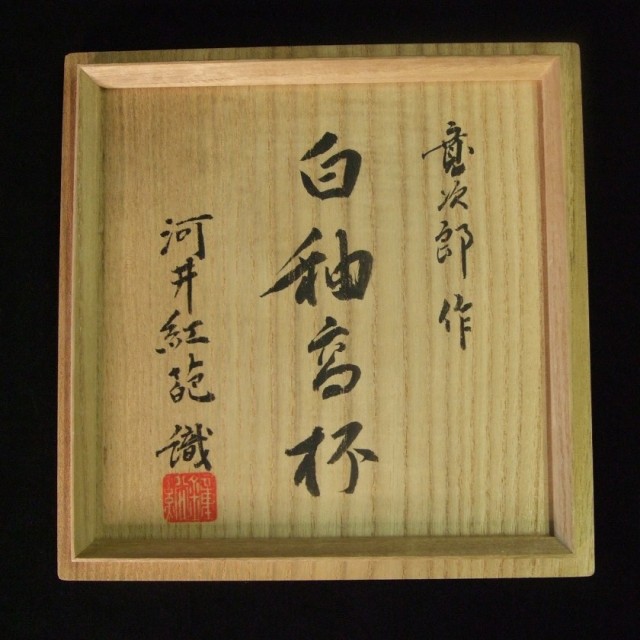 寛次郎作
白釉高杯
河井紅葩識